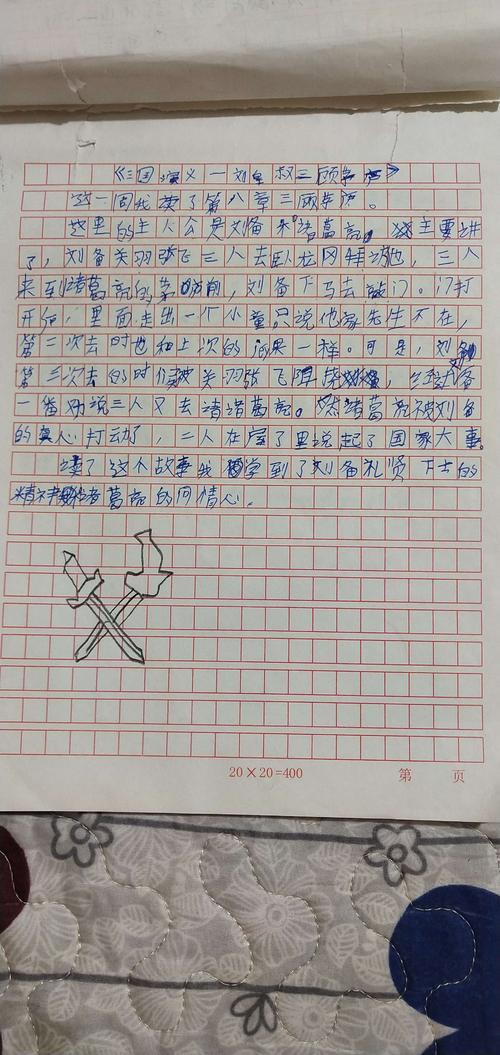 《三国演义一刘皇叔三顾茅庐》
这一周我读了第八章三顾茅庐。
这里的主人公是刘备和诸葛亮。主要讲
了，刘备关羽张飞三人去卧龙冈拜访他，三人
来到诸葛亮的茅前，刘备下马去敲门。门打
开后，里面走出一个小童只说他家先生不在，
第二次去时也和上次的结果一样。可是，刘备
第三次去的时候被关羽张飞阻挠，经过刘备
一番劝说三人又去请诸葛亮。诸葛亮被刘备
的真心打动了，二人在屋子里说起了国家大事。
读了这个故事我学到了刘备礼贤下士的
精神和诸葛亮的同情心。
20×20=400
第 页